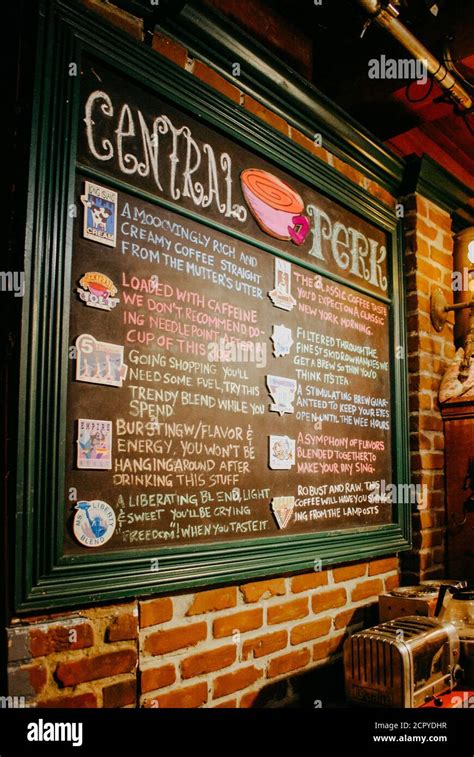 CENTRAL PERK
LONG ISLAND
CREAM
A MOOOVINGLY RICH AND
CREAMY COFFEE STRAIGHT
FROM THE MUTTER'S UTTER
LOADED WITH CAFFEINE
WE DON'T RECOMMEND DO-
ING NEEDLEPOINT AFTER
CUP OF THIS
5
GOING SHOPPING YOU'LL
NEED SOME FUEL, TRY THIS
TRENDY BLEND WHILE YOU
SPEND
EMPIRE
BURSTING W/FLAVOR &
ENERGY. YOU WON'T BE
HANGING AROUND AFTER
DRINKING THIS STUFF
MISS LIBERTY
BLEND
A LIBERATING BLEND, LIGHT
& SWEET YOU'LL BE CRYING
"FREEDOM!" WHEN YOU TASTE IT.
THE CLASSIC COFFEE
YOU'D EXPECT ON A
CLASSIC NEW YORK
MORNING.
FILTERED THROUGH THE
FINEST SKID ROW HANKIES WE
GET A BREW SO THIN YOU'D
THINK IT'S TEA
A STIMULATING BREW GUAR-
ANTEED TO KEEP YOUR EYES
OPEN UNTIL THE WEE HOURS
A SYMPHONY OF FLAVORS
BLENDED TOGETHER TO
MAKE YOUR DAY SING.
ROBUST AND RAW. THIS
COFFEE WILL HAVE YOU SWING-
ING FROM THE LAMPOSTS
alamy
alamy
Image ID: 2CPYDHR
www.alamy.com